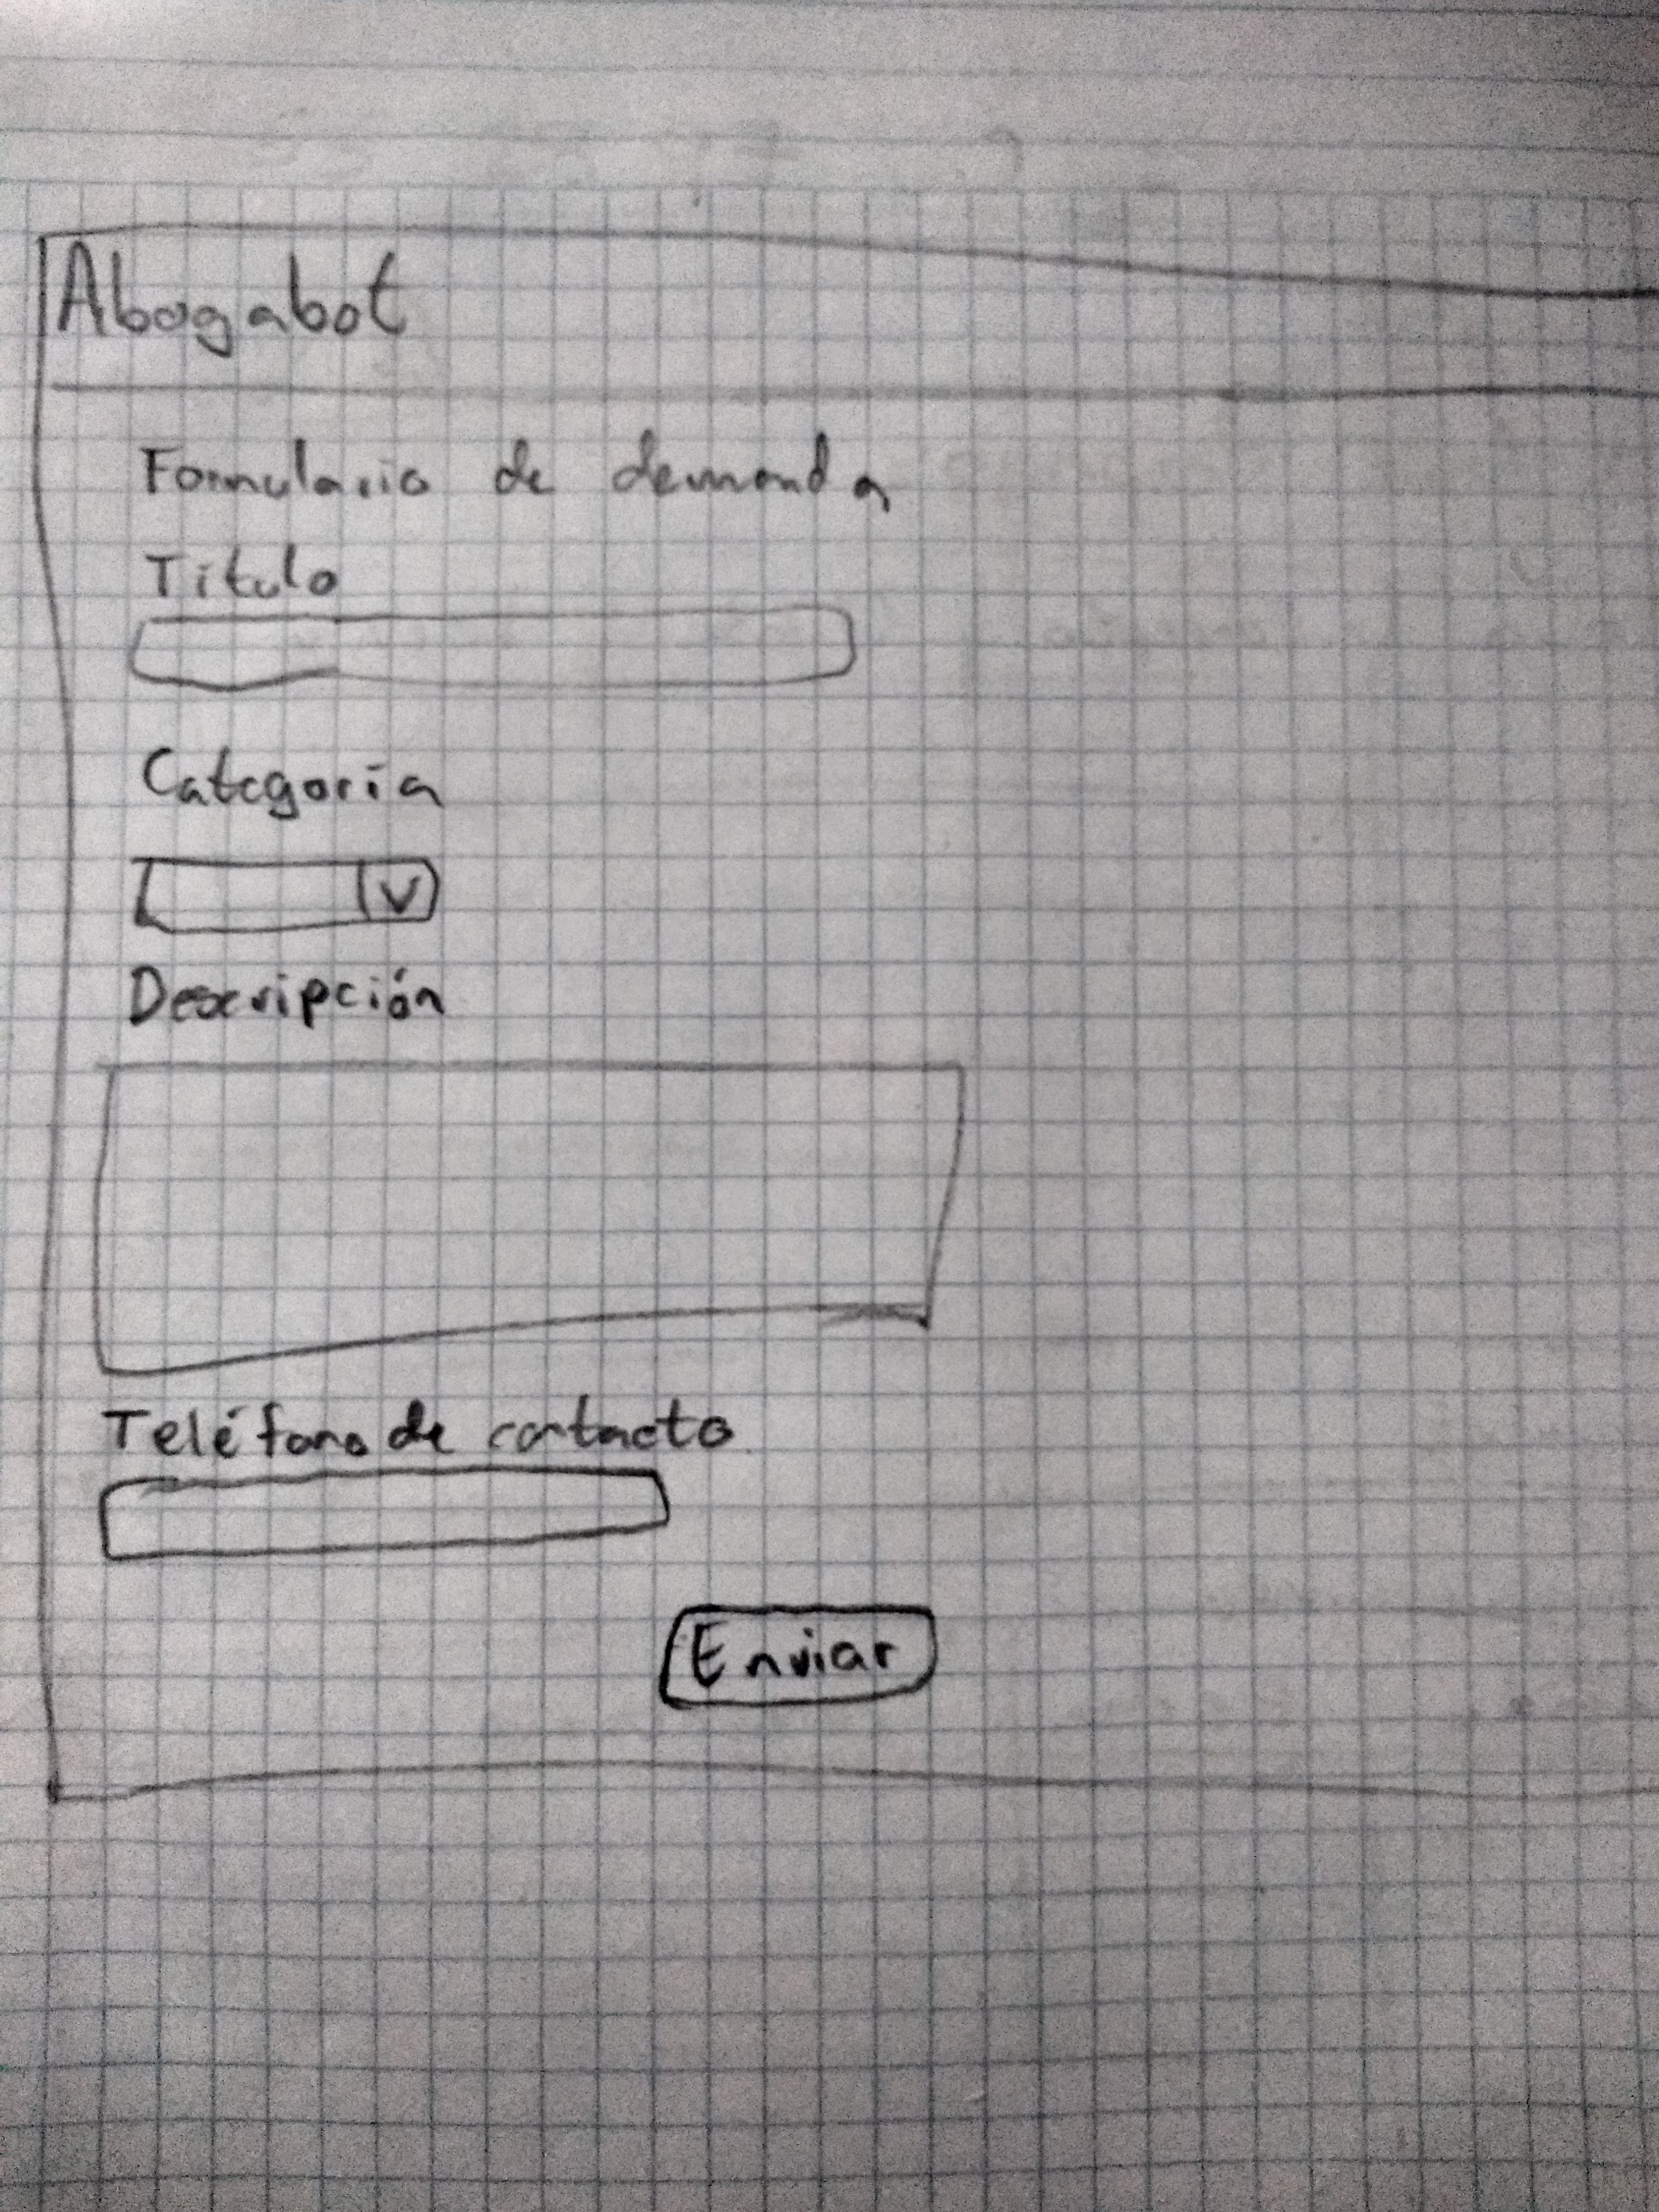 Abogabot
Formulario de demanda
Título
Categoría
Descripción
Teléfono de contacto
Enviar